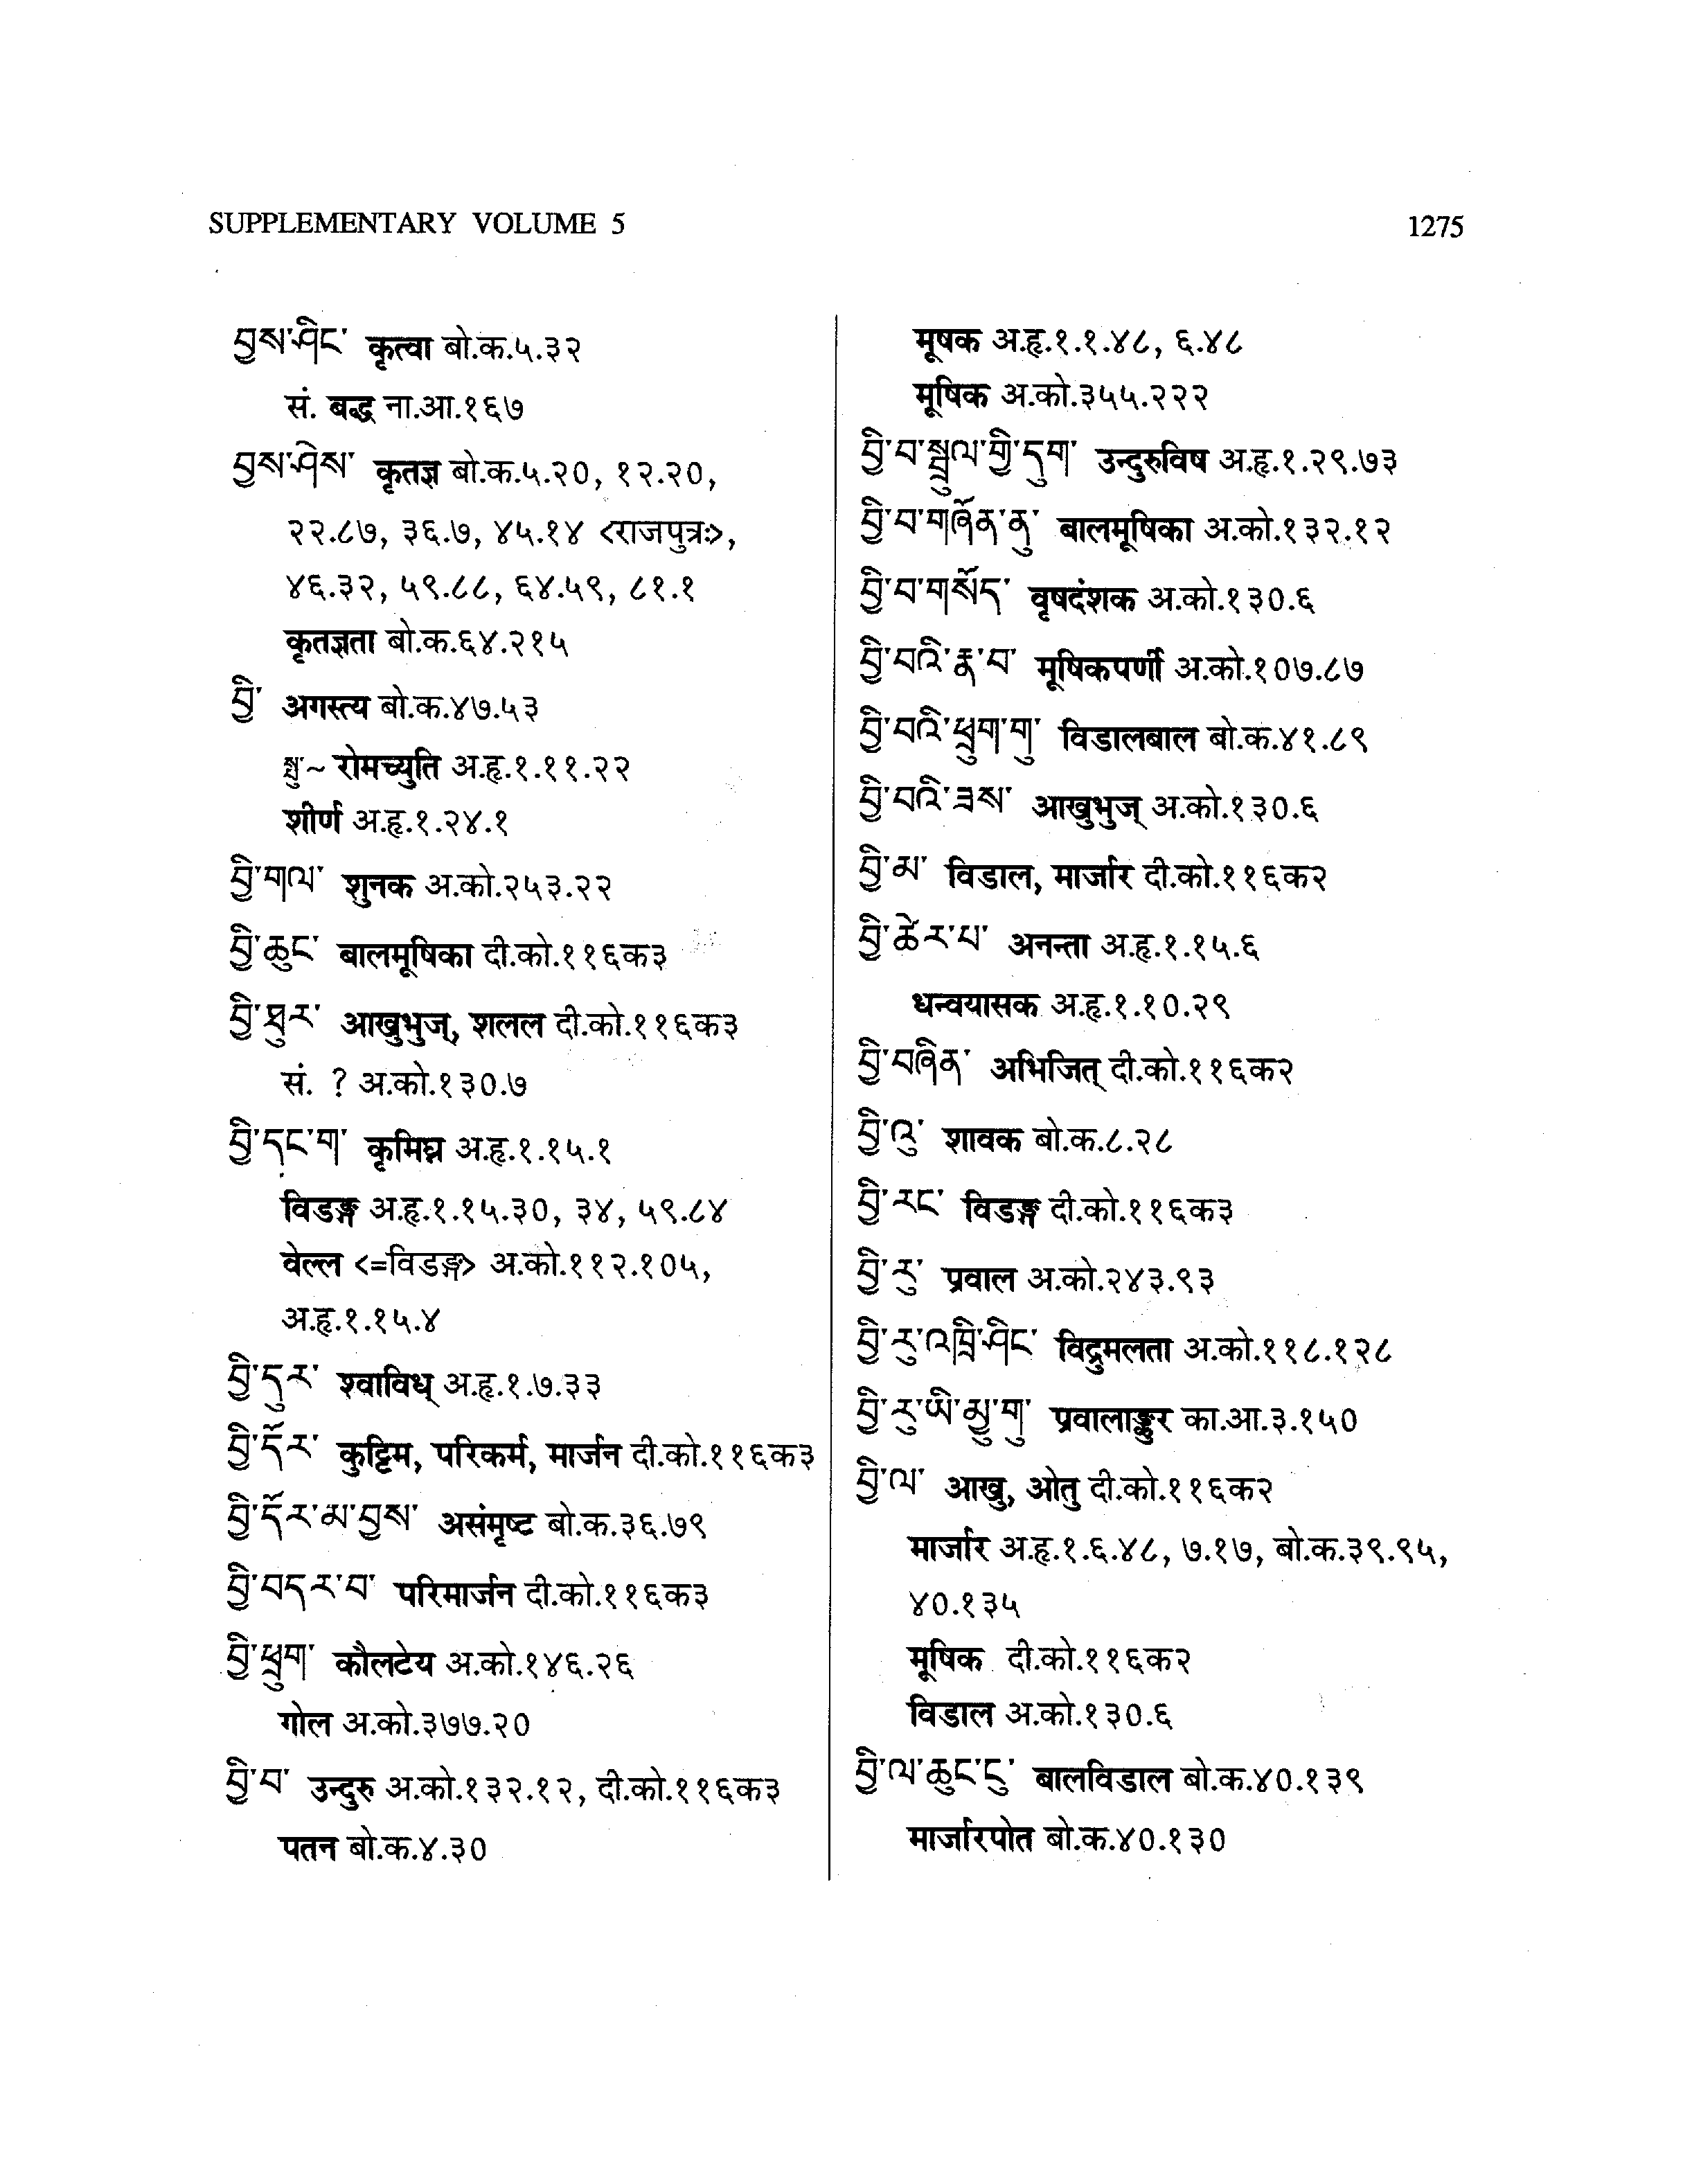 SUPPLEMENTARY VOLUME 5 1275
བྱས་ཤིང་ कृत्वा बो.क.५.३२
सं. बद्ध ना.आ.१६७
བྱས་ཤེས་ कृतज्ञ बो.क.५.२०, १२.२०,
२२.८७, ३६.७, ४५.१४ <राजपुत्रः>,
४६.३२, ५९.८८, ६४.५९, ८१.१
कृतज्ञता बो.क.६४.२१५
བྱི་ अगस्त्य बो.क.४७.५३
སྤུ་~ रोमच्युति अ.हृ.१.११.२२
शीर्ण अ.हृ.१.२४.१
བྱི་གལ་ शुनक अ.को.२५३.२२
བྱི་ཆུང་ बालमूषिका दी.को.११६क३
བྱི་ཐུར་ आखुभुज्, शलल दी.को.११६क३
सं. ? अ.को.१३०.७
བྱི་དང་ག་ कृमिघ्न अ.हृ.१.१५.१
विडङ्ग अ.हृ.१.१५.३०, ३४, ५९.८४
वेल्ल <=विडङ्ग> अ.को.११२.१०५,
अ.हृ.१.१५.४
བྱི་དུར་ श्वाविध् अ.हृ.१.७.३३
བྱི་དོར་ कुट्टिम, परिकर्म, मार्जन दी.को.११६क३
བྱི་དོར་མ་བྱས་ असंमृष्ट बो.क.३६.७९
བྱི་བདར་བ་ परिमार्जन दी.को.११६क३
བྱི་ཕྲུག་ कौलटेय अ.को.१४६.२६
गोल अ.को.३७७.२०
བྱི་བ་ उन्दुरु अ.को.१३२.१२, दी.को.११६क३
पतन बो.क.४.३०
मूषक अ.हृ.१.१.४८, ६.४८
मूषिक अ.को.३५५.२२२
བྱི་བ་སྦྲུལ་གྱི་དུག་ उन्दुरुविष अ.हृ.१.२९.७३
བྱི་བ་གཞོན་ནུ་ बालमूषिका अ.को.१३२.१२
བྱི་བ་གསོད་ वृषदंशक अ.को.१३०.६
བྱི་བའི་རྣ་བ་ मूषिकपर्णी अ.को.१०७.८७
བྱི་བའི་ཕྲུག་གུ་ विडालबाल बो.क.४१.८९
བྱི་བའི་ཟས་ आखुभुज् अ.को.१३०.६
བྱི་མ་ विडाल, मार्जार दी.को.११६क२
བྱི་ཚེར་པ་ अनन्ता अ.हृ.१.१५.६
धन्वयासक अ.हृ.१.१०.२९
བྱི་བཞིན་ अभिजित् दी.को.११६क२
བྱི་འུ་ शावक बो.क.८.२८
བྱི་རང་ विडङ्ग दी.को.११६क३
བྱི་རུ་ प्रवाल अ.को.२४३.९३
བྱི་རུ་འཁྲི་ཤིང་ विद्रुमलता अ.को.११८.१२८
བྱི་རུ་ཡི་མྱུ་གུ་ प्रवालाङ्कुर का.आ.३.१५०
བྱི་ལ་ आखु, ओतु दी.को.११६क२
मार्जार अ.हृ.१.६.४८, ७.१७, बो.क.३९.९५,
४०.१३५
मूषिक दी.को.११६क२
विडाल अ.को.१३०.६
བྱི་ལ་ཆུང་ངུ་ बालविडाल बो.क.४०.१३९
मार्जारपोत बो.क.४०.१३०